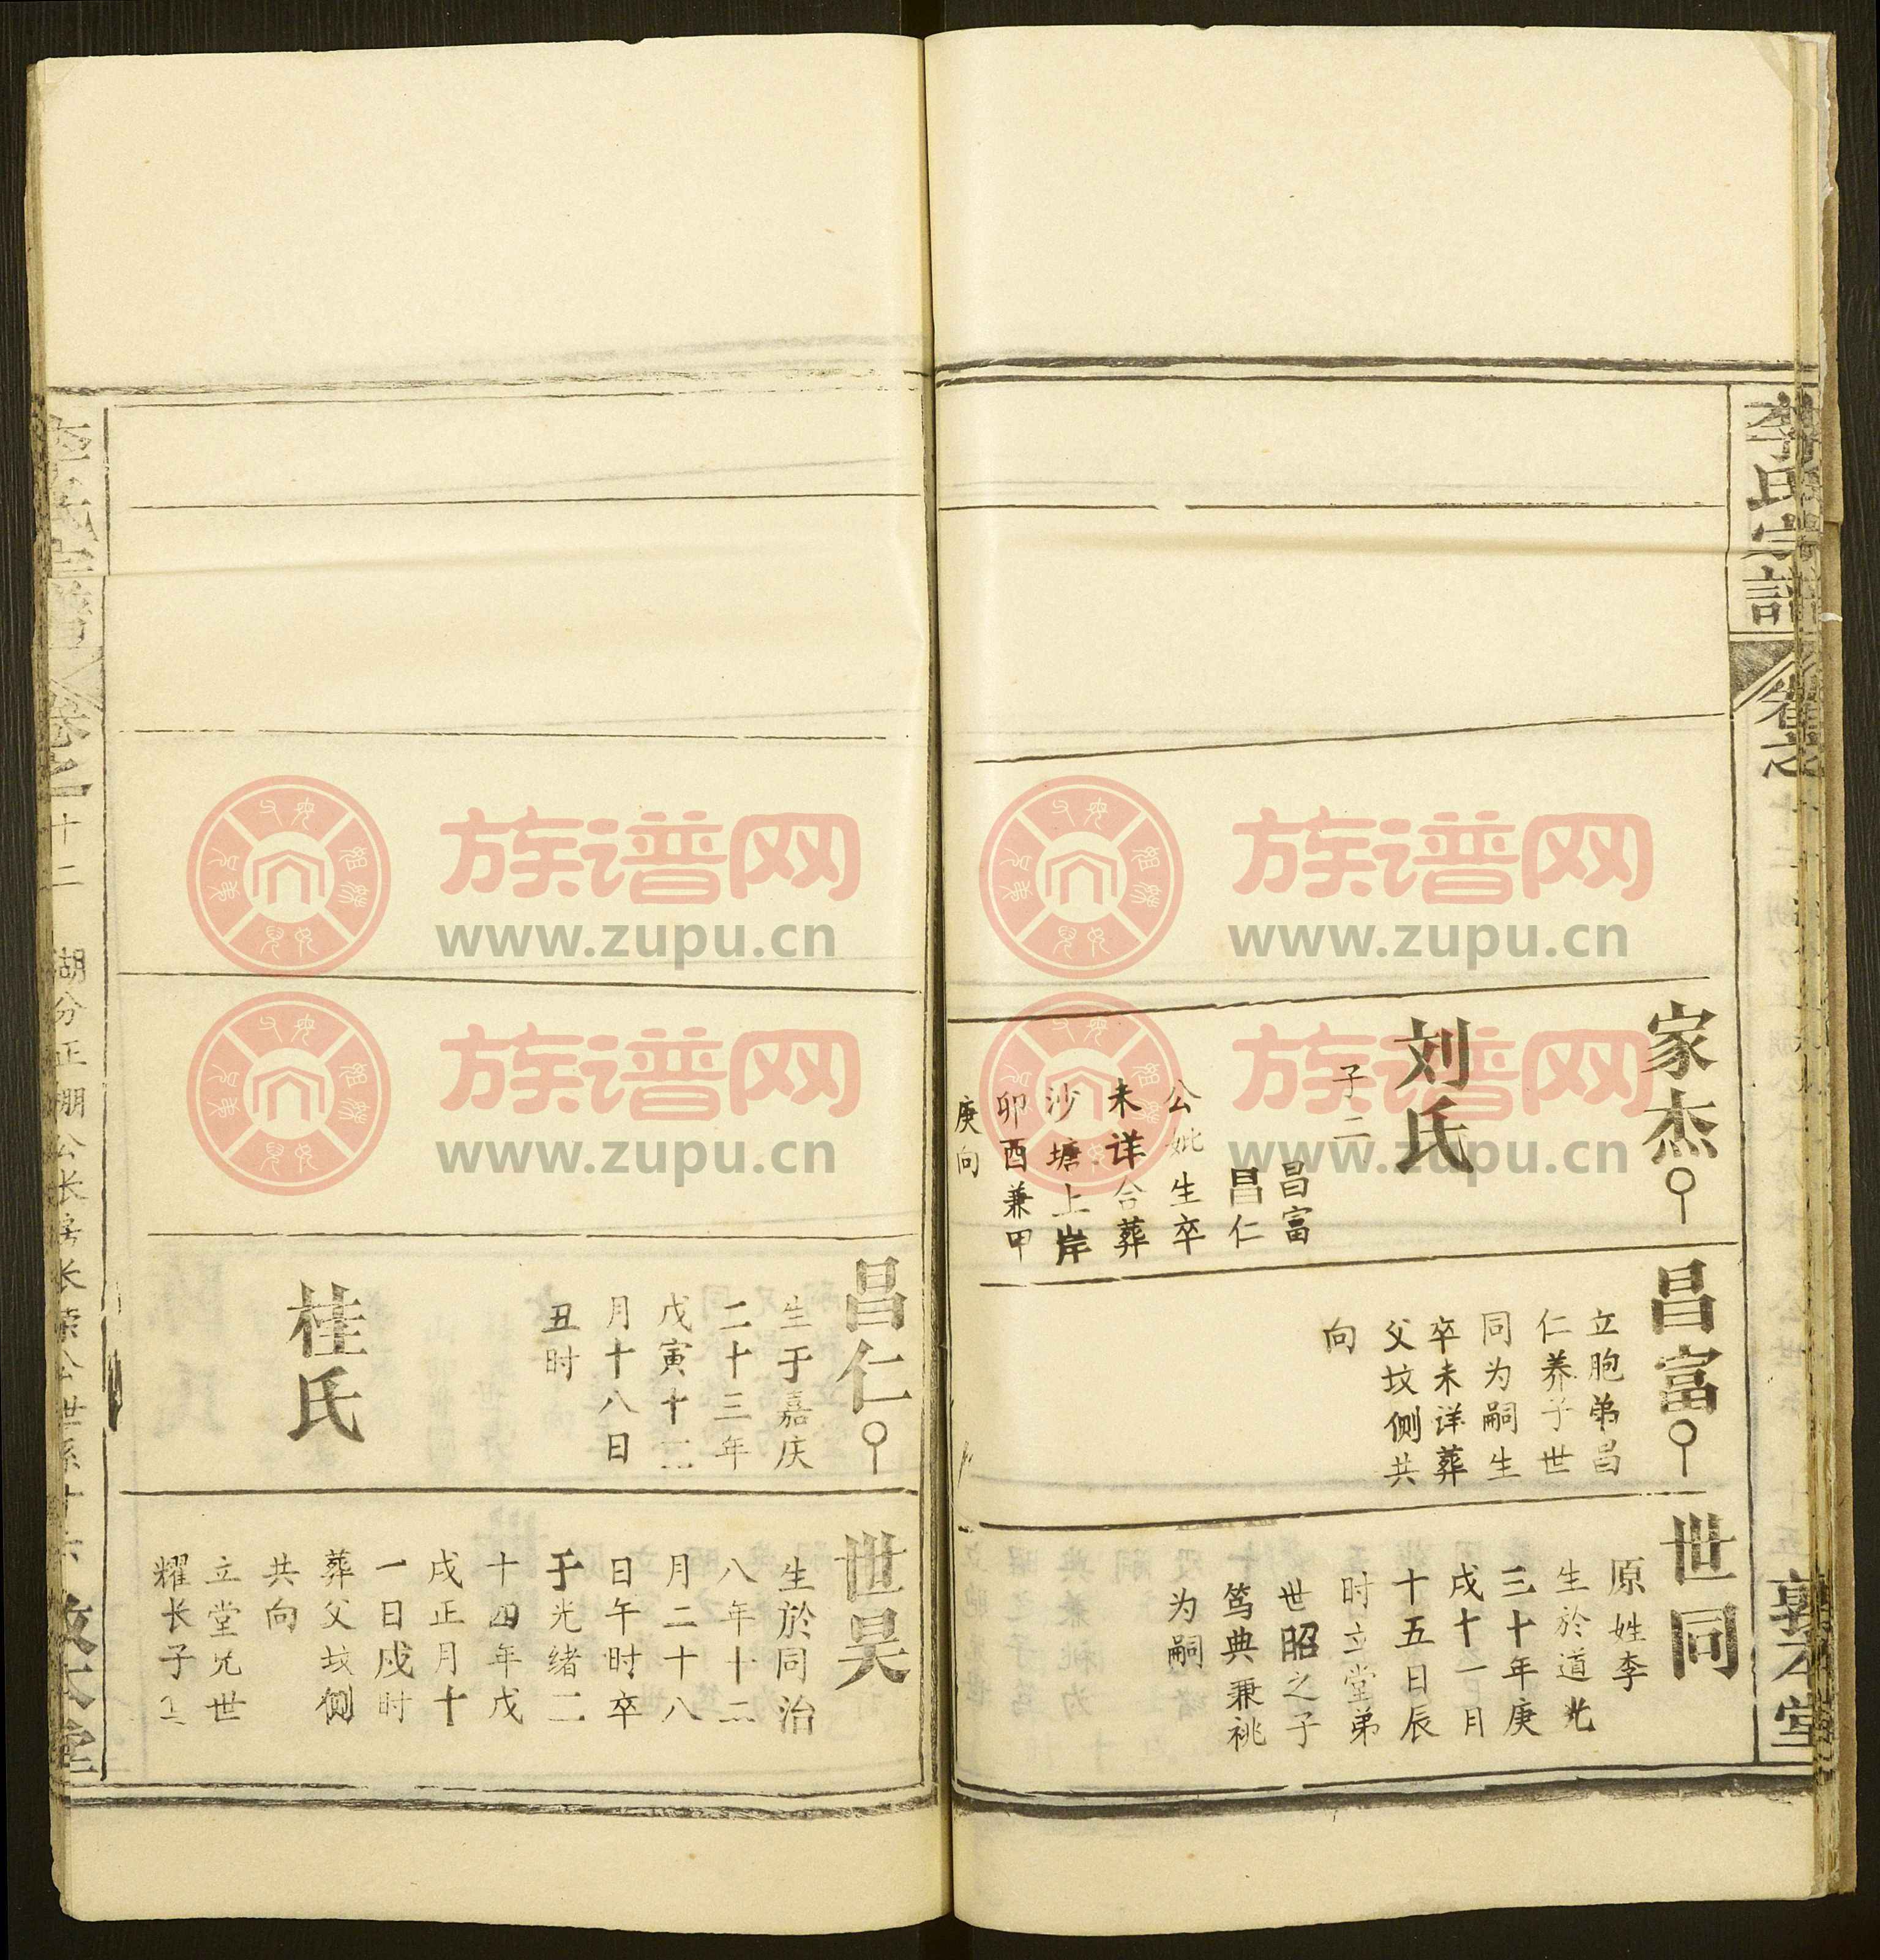 李氏宗譜
卷之
敦本堂
家杰
刘氏
子二
昌富
昌仁
公妣生卒
未详合葬
沙塘上岸
卯酉兼甲
庚向
昌富
立胞弟昌
仁养子世
同为嗣生
卒未详葬
父坟侧共
向
世同
原姓李
生於道光
三十年庚
戌十一月
十五日辰
时立堂弟
世昭之子
笃典兼祧
为嗣
昌仁
生于嘉庆
二十三年
戊寅十二
月十八日
丑时
桂氏
世昊
生於同治
八年十二
月二十八
日午时卒
于光绪二
十四年戊
戌正月十
一日戌时
葬父坟侧
共向
立堂兄世
耀长子
卷之
十二
湖分正棚公长房长荣公世系
族谱网
www.zupu.cn
族谱网
www.zupu.cn
族谱网
www.zupu.cn
族谱网
www.zupu.cn